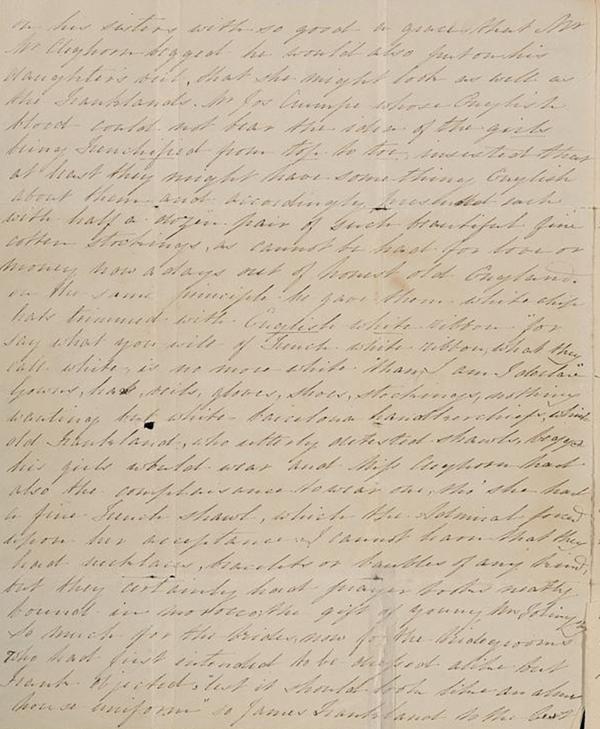 on his sisters with so good a grace, that Mr
Mr Cleghorn begged he would also put on his
daughter's veil, that she might look as well as
the Franklands. Mr Jos Crumpe whose English
blood could not bear the idea of the girls
being Frenchified from top to toe, insisted that
at least they might have something English
about them and accordingly presented each
with half a dozen pair of such beautiful fine
cotton stockings, as cannot be had for love or
money now a days out of honest old England.
on the same principle he gave them white chip
hats trimmed with English white ribbon "for
say what you will of French white ribbon, what they
call white, is no more white than I am I declare"
Gowns, hats, veils, gloves, shoes, stockings, nothing
wanting but white Barcelona handkerchiefs, which
old Frankland, who utterly detested shawls, begged
his girls would wear and Miss Cleghorn had
also the complaisance to wear one, tho' she had
a fine French shawl, which the Admiral forced
upon her acceptance. I cannot learn that they
had necklaces, bracelets or baubles of any kind;
but they certainly had prayer books neatly
bound in morocco, the gift of young Mr
So much for the brides, now for the bridegrooms
who had first intended to be dressed alike but
Frank objected "lest it should look like an alms
house uniform" so James Frankland to the best